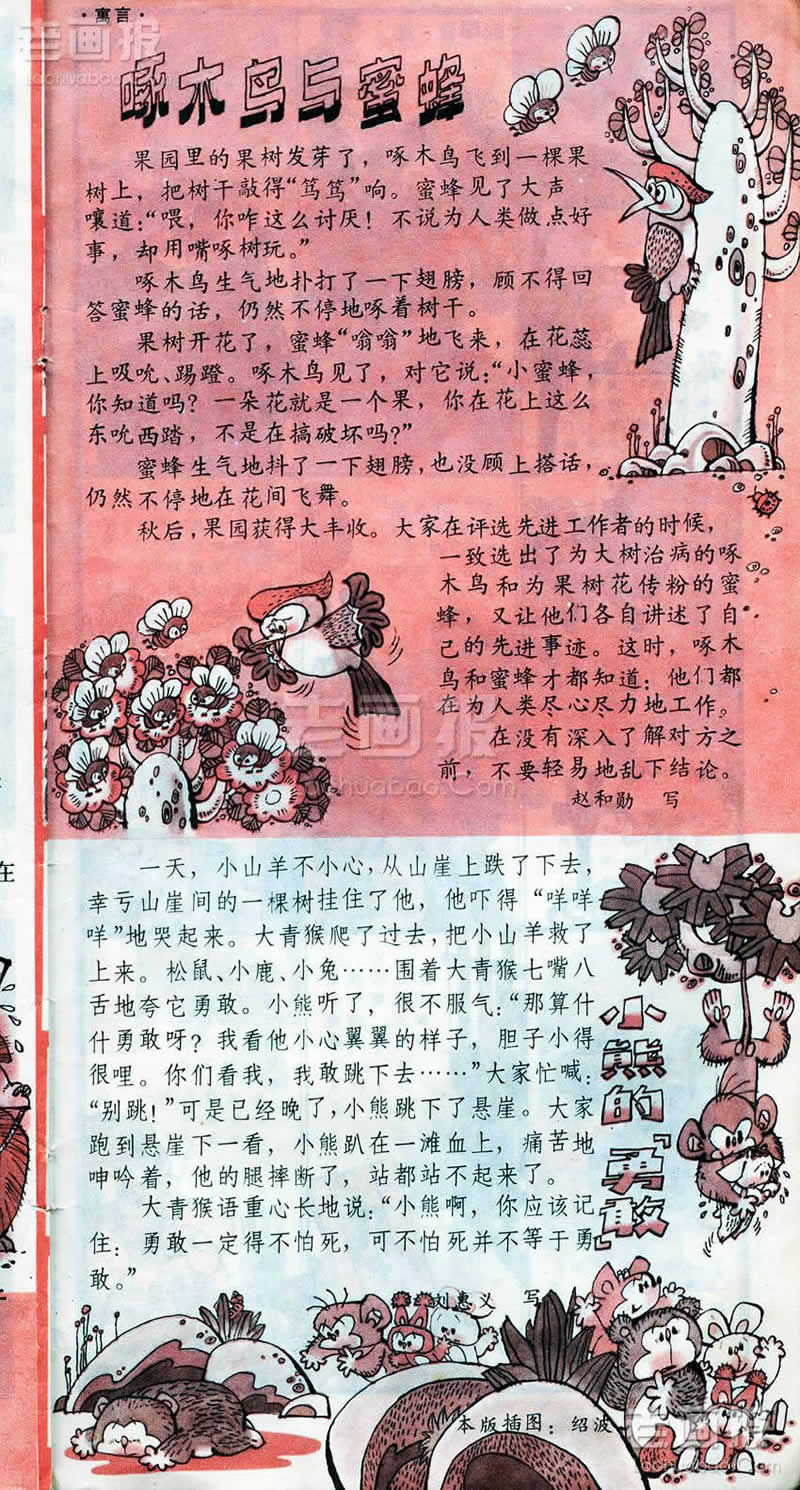 ·寓言·
老画报
laohuabao.com
啄木鸟与蜜蜂
果园里的果树发芽了，啄木鸟飞到一棵果
树上，把树干敲得“笃笃”响。蜜蜂见了大声
嚷道：“喂，你咋这么讨厌！不说为人类做点好
事，却用嘴啄树玩。”
啄木鸟生气地扑打了一下翅膀，顾不得回
答蜜蜂的话，仍然不停地啄着树干。
果树开花了，蜜蜂“嗡嗡”地飞来，在花蕊
上吸吮、踢蹬。啄木鸟见了，对它说：“小蜜蜂，
你知道吗？一朵花就是一个果，你在花上这么
东吮西踏，不是在搞破坏吗？”
蜜蜂生气地抖了一下翅膀，也没顾上搭话，
仍然不停地在花间飞舞。
秋后，果园获得大丰收。大家在评选先进工作者的时候，
一致选出了为大树治病的啄
木鸟和为果树花传粉的蜜
蜂，又让他们各自讲述了自
己的先进事迹。这时，啄木
鸟和蜜蜂才都知道：他们都
在为人类尽心尽力地工作。
在没有深入了解对方之
前，不要轻易地乱下结论。
赵和勋 写
老画报
laohuabao.com
在
小熊的“勇敢”
一天，小山羊不小心，从山崖上跌了下去，
幸亏山崖间的一棵树挂住了他，他吓得“咩咩
咩”地哭起来。大青猴爬了过去，把小山羊救了
上来。松鼠、小鹿、小兔……围着大青猴七嘴八
舌地夸它勇敢。小熊听了，很不服气：“那算什
什勇敢呀？我看他小心翼翼的样子，胆子小得
很哩。你们看我，我敢跳下去……”大家忙喊：
“别跳！”可是已经晚了，小熊跳下了悬崖。大家
跑到悬崖下一看，小熊趴在一滩血上，痛苦地
呻吟着，他的腿摔断了，站都站不起来了。
大青猴语重心长地说：“小熊啊，你应该记
住：勇敢一定得不怕死，可不怕死并不等于勇
敢。”
刘惠义 写
本版插图：绍波
老画报
laohuabao.com